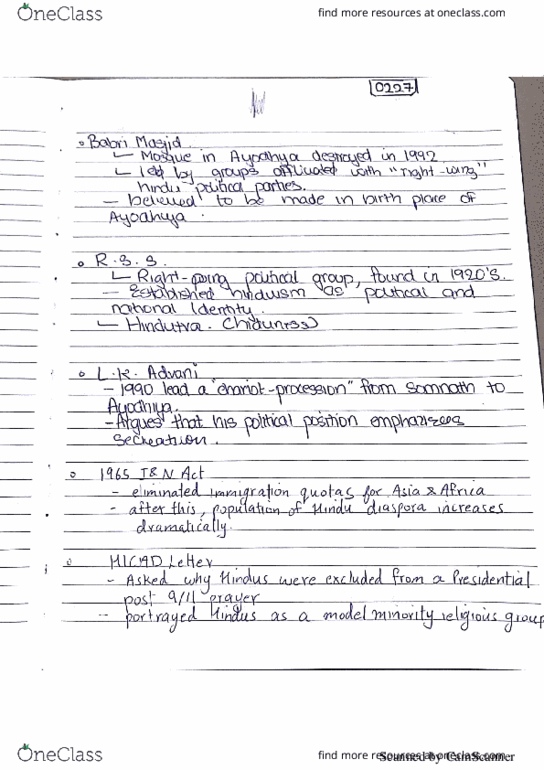 OneClass
find more resources at oneclass.com
0227
Babri Masjid
Mosque in Ayodhya destroyed in 1992
led by groups affiliated with "right-wing"
hindu political parties.
- believed to be made in birth place of
Ayodhya.
R.S.S.
Right-going political group, found in 1920's.
- Established hinduism as political and
national identity.
Hindutva.
L.K. Advani
- 1990 lead a "chariot-procession" from Somnath to
Ayodhiya.
- Argues that his political position emphasizes
1965 I&N Act
- eliminated immigration quotas for Asia & Africa
- after this, population of Hindu diaspora increases
dramatically.
Letter
- Asked why Hindus were excluded from a Presidential
post 9/11 prayer
- portrayed Hindus as a model minority religious group
OneClass
find more resources at oneclass.com
Scanned by CamScanner